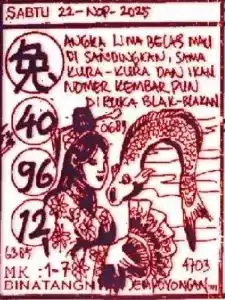 SABTU 22-NOP-2025
兔
ANGKA LIMA BELAS MAU
DI SANDINGKAN, SAMA
KURA-KURA DAN IKAN
NOMER KEMBAR PUN
DI BUKA BLAK-BLAKAN
40
0689
96
12
6384
4703
MK : 1-7
BINATANGN